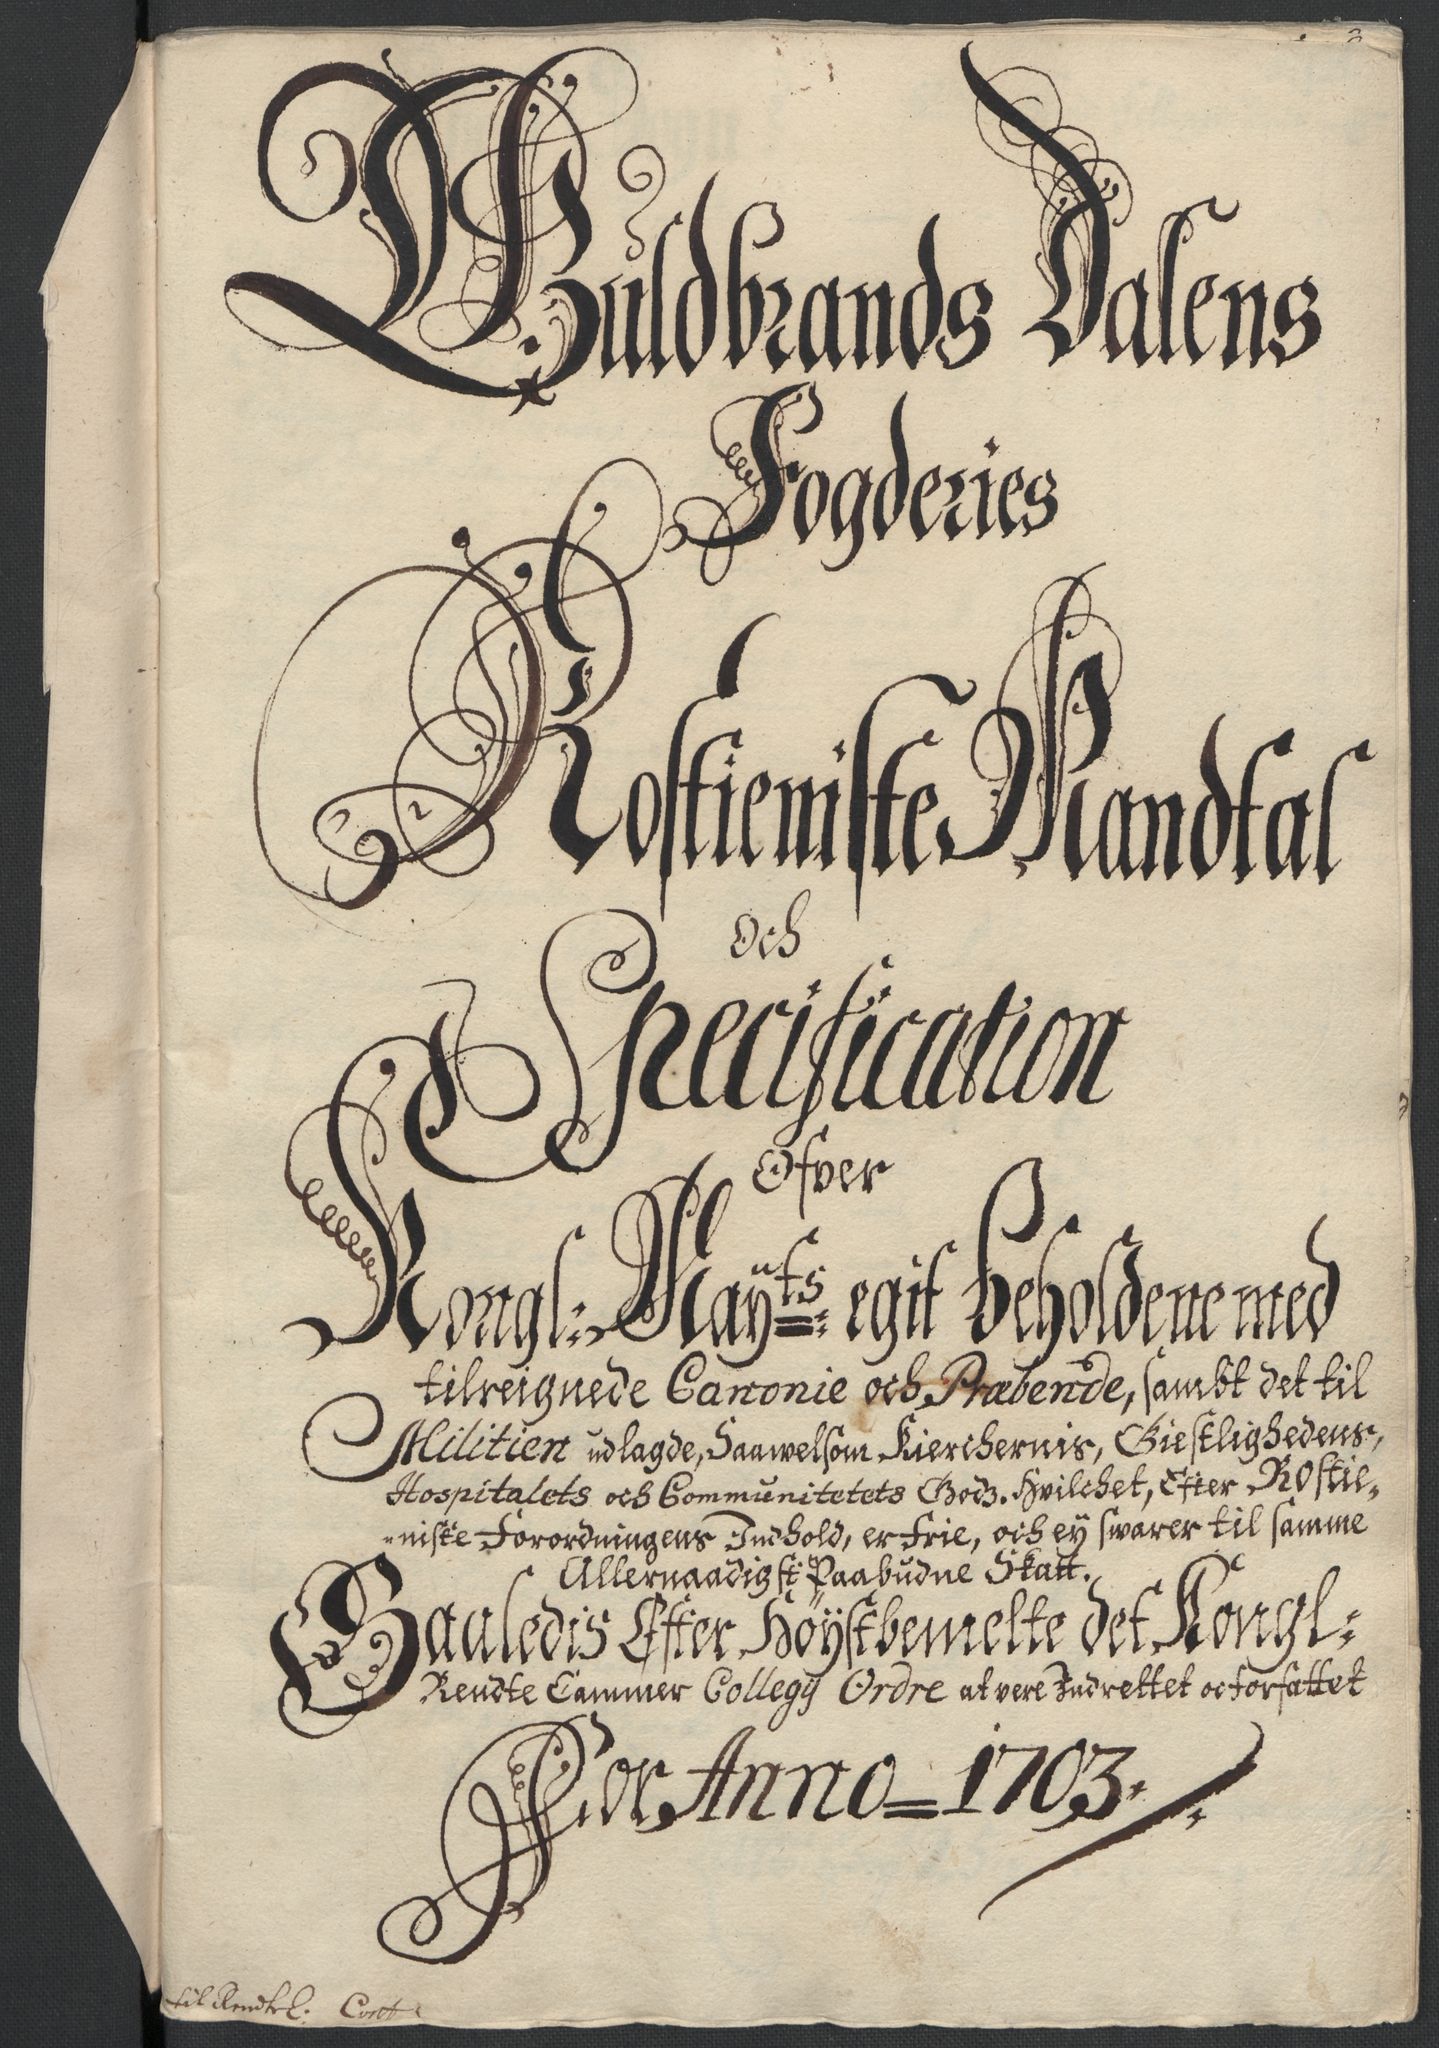 Guldbrands Dalens
Fogderies
Rostieniste Mandtal
Och
Specification
Ofver
Kongl: Mayts: egit beholdene med
tilreignede Canonie och Præbende, sambt det til
Militien udlagde, Saawelsom Kierchernis, Giestlighedens,
Hospitalets och Communitetets Godz. Hvilchet, Efter Rostie-
niste Forordningens Indhold, er Frie, och ey swarer til samme
Allernaadigst Paabudne Skatt.
Saaledis Efter Höystbemelte det Kongl:
Rendte Cammer Collegij Ordre at vere Indrettet oc forfattet
For Anno = 1703.
til Rendte